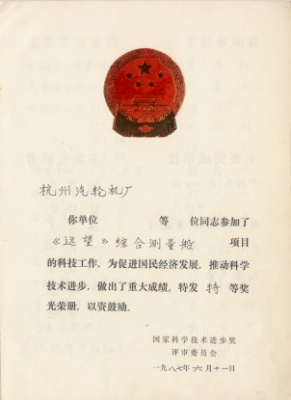 杭州汽轮机厂
你单位 等 位同志参加了
《远望》综合测量船 项目
的科技工作，为促进国民经济发展，推动科学
技术进步，做出了重大成绩。特发 特 等奖
光荣册，以资鼓励。
国家科学技术进步奖
评审委员会
一九八七年六月十一日